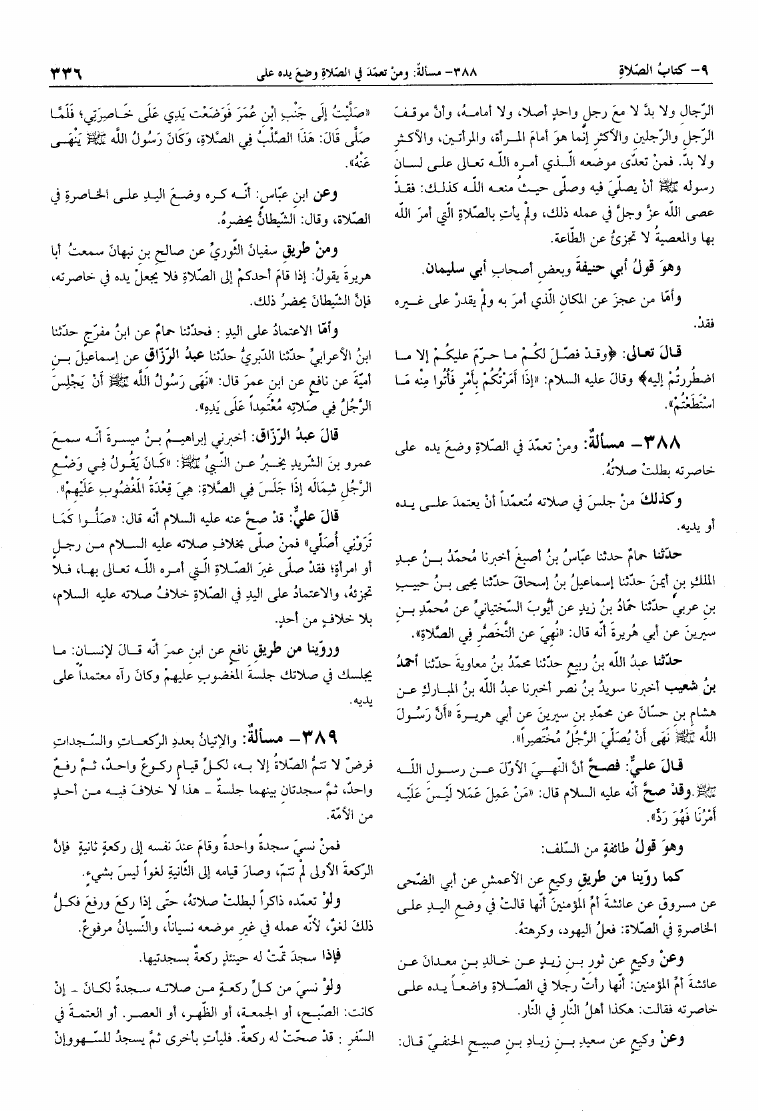 ٩- كتابُ الصّلاةِ
٣٨٨- مسألةٌ: ومنْ تعمّدَ في الصّلاةِ وضعَ يده على
٣٣٦
الرّجالِ ولا بدَّ لا معَ رجلٍ واحدٍ أصلا، ولا أمامهُ، وأنَّ موقفَ
الرّجلِ والرّجلينِ والأكثرِ إنّما هوَ أمامَ المرأةِ، والمرأتينِ، والأكثرِ
ولا بدّ. فمنْ تعدّى موضعه الّذي أمره اللّه تعالى على لسان
رسوله ﷺ أنْ يصلّيَ فيه وصلّى حيثُ منعه اللّه كذلكَ: فقدْ
عصى اللّه عزَّ وجلَّ في عمله ذلكَ، ولمْ يأتِ بالصّلاةِ الّتي أمرَ اللّه
بها والمعصيةُ لا تجزئُ عن الطّاعة.
وهوَ قولُ أبي حنيفةَ وبعضِ أصحابِ أبي سليمان.
وأمّا من عجزَ عن المكانِ الّذي أمرَ به ولمْ يقدرْ على غيره
فقدْ.
قالَ تعالى: ﴿وقدْ فصّلَ لكُمْ ما حرّمَ عليكُمْ إلا ما
اضطُررتُمْ إليه﴾ وقالَ عليه السلام: «إذَا أَمَرْتُكُمْ بِأَمْرٍ فَأْتُوا مِنْه مَا
اسْتَطَعْتُمْ».
٣٨٨- مسألةٌ: ومنْ تعمّدَ في الصّلاةِ وضعَ يده على
خاصرته بطلتْ صلاتُهُ.
وكذلكَ منْ جلسَ في صلاته مُتعمّداً أنْ يعتمدَ على يده
أو يديه.
حدّثنا حمامٌ حدثنا عبّاسُ بنُ أصبغَ أخبرنا مُحمّدُ بنُ عبدِ
الملكِ بنِ أيمنَ حدّثنا إسماعيلُ بنُ إسحاقَ حدّثنا يحيى بنُ حبيبِ
بنِ عربيٍّ حدّثنا حمّادُ بنُ زيدٍ عن أيّوبَ السّختيانيِّ عن مُحمّدِ بنِ
سيرينَ عن أبي هُريرةَ أنّه قال: «نُهِيَ عن التَّخَصُّرِ فِي الصَّلاةِ».
حدّثنا عبدُ اللّه بنُ ربيعٍ حدّثنا محمّدُ بنُ معاويةَ حدّثنا أحمدُ
بنُ شعيبٍ أخبرنا سويدُ بنُ نصرٍ أخبرنا عبدُ اللّه بنُ المباركِ عن
هشامِ بنِ حسّانَ عن محمّدِ بنِ سيرينَ عن أبي هريرةَ «أَنَّ رَسُولَ
اللَّه ﷺ نَهَى أَنْ يُصَلِّيَ الرَّجُلُ مُخْتَصِراً».
قالَ عليٌّ: فصحَّ أنَّ النّهيَ الأوّلَ عن رسولِ اللّه
ﷺ.وقدْ صحَّ أنّه عليه السلام قال: «مَنْ عَمِلَ عَمَلا لَيْسَ عَلَيْه
أَمْرُنَا فَهُوَ رَدٌّ».
وهوَ قولُ طائفةٍ من السّلف:
كما روّينا من طريقِ وكيعٍ عن الأعمشِ عن أبي الضّحى
عن مسروقٍ عن عائشةَ أمِّ المؤمنينَ أنّها قالتْ في وضعِ اليدِ على
الخاصرةِ في الصّلاة: فعلُ اليهود، وكرهتهُ.
وعنْ وكيعٍ عن ثورِ بنِ زيدٍ عن خالدِ بنِ معدانَ عن
عائشةَ أمِّ المؤمنين: أنّها رأتْ رجلا في الصّلاةِ واضعاً يده على
خاصرته فقالت: هكذا أهلُ النّارِ في النّار.
وعنْ وكيعٍ عن سعيدِ بنِ زيادِ بنِ صبيحٍ الحنفيِّ قال:
«صَلَّيْتُ إلَى جَنْبِ ابْنِ عُمَرَ فَوَضَعْت يَدِي عَلَى خَاصِرَتِي؛ فَلَمَّا
صَلَّى قَالَ: هَذَا الصَّلْبُ فِي الصَّلاةِ، وَكَانَ رَسُولُ اللَّه ﷺ يَنْهَى
عَنْهُ».
وعن ابنِ عبّاسٍ: أنّه كره وضعَ اليدِ على الخاصرةِ في
الصّلاة، وقال: الشّيطانُ يحضرهُ.
ومنْ طريقِ سفيانَ الثّوريِّ عن صالحِ بنِ نبهانَ سمعتُ أبا
هريرةَ يقولُ: إذا قامَ أحدكمْ إلى الصّلاةِ فلا يجعلْ يده في خاصرته،
فإنَّ الشّيطانَ يحضرُ ذلك.
وأمّا الاعتمادُ على اليدِ : فحدّثنا حمامٌ عن ابنُ مفرّجٍ حدّثنا
ابنُ الأعرابيِّ حدّثنا الدّبريُّ حدّثنا عبدُ الرّزّاقِ عن إسماعيلَ بنِ
أميّةَ عن نافعٍ عن ابنِ عمرَ قال: «نَهَى رَسُولُ اللَّه ﷺ أَنْ يَجْلِسَ
الرَّجُلُ فِي صَلاتِه مُعْتَمِداً عَلَى يَدِهِ».
قالَ عبدُ الرّزّاق: أخبرني إبراهيمُ بنُ ميسرةَ أنّه سمعَ
عمرو بنَ الشّريدِ يخبرُ عن النّبيِّ ﷺ: «كَانَ يَقُولُ فِي وَضْعِ
الرَّجُلِ شِمَالَه إذَا جَلَسَ فِي الصَّلاةِ: هِيَ قِعْدَةُ الْمَغْضُوبِ عَلَيْهِمْ».
قالَ عليٌّ: قدْ صحَّ عنه عليه السلام أنّه قال: «صَلُّوا كَمَا
تَرَوْنِي أُصَلِّي» فمنْ صلّى بخلافِ صلاته عليه السلام من رجلٍ
أو امرأةٍ؛ فقدْ صلّى غيرَ الصّلاةِ الّتي أمره اللّه تعالى بها، فلا
تجزئهُ، والاعتمادُ على اليدِ في الصّلاةِ خلافُ صلاته عليه السلام،
بلا خلافٍ من أحدٍ.
وروّينا من طريقِ نافعٍ عن ابنِ عمرَ أنّه قالَ لإنسان: ما
يجلسك في صلاتك جلسةَ المغضوبِ عليهمْ وكانَ رآه معتمداً على
يديه.
٣٨٩- مسألةٌ: والإتيانُ بعددِ الرّكعاتِ والسّجداتِ
فرضٌ لا تتمُّ الصّلاةُ إلا به، لكلِّ قيامٍ ركوعٌ واحدٌ، ثمَّ رفعٌ
واحدٌ، ثمَّ سجدتانِ بينهما جلسةٌ - هذا لا خلافَ فيه من أحدٍ
من الأمّة.
فمنْ نسيَ سجدةً واحدةً وقامَ عندَ نفسه إلى ركعةٍ ثانيةٍ فإنَّ
الرّكعةَ الأولى لمْ تتمّ، وصارَ قيامه إلى الثّانيةِ لغواً ليسَ بشيءٍ.
ولوْ تعمّده ذاكراً لبطلتْ صلاتهُ، حتّى إذا ركعَ ورفعَ فكلُّ
ذلكَ لغوٌ، لأنّه عمله في غيرِ موضعه نسياناً، والنّسيانُ مرفوعٌ.
فإذا سجدَ تمّتْ له حينئذٍ ركعةٌ بسجدتيها.
ولوْ نسيَ من كلِّ ركعةٍ من صلاته سجدةً لكانَ - إنْ
كانت: الصّبح، أو الجمعة، أو الظّهر، أو العصر. أو العتمةَ في
السّفرِ : قدْ صحّتْ له ركعةٌ. فليأتِ بأخرى ثمَّ يسجدُ للسّهووإنْ